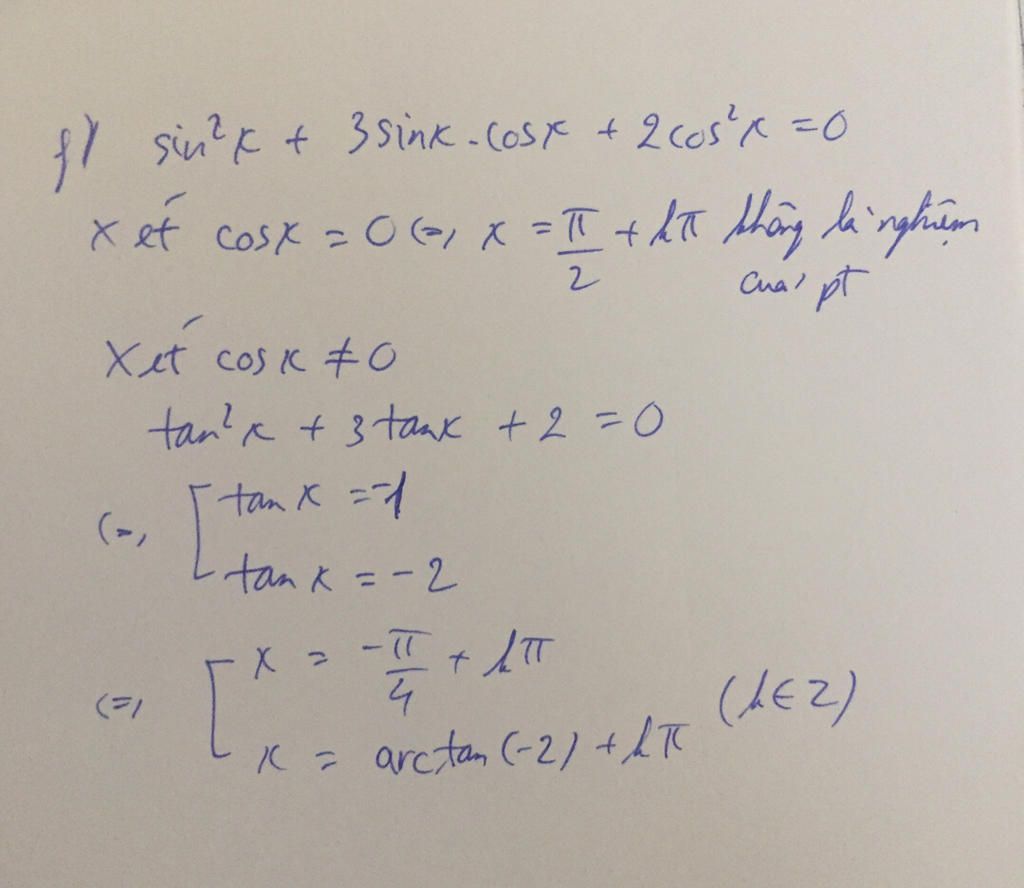 f) sin²x + 3sinx.cosx + 2cos²x = 0
Xét cosx = 0 (=) x = π/2 + kπ không là nghiệm
của pt
Xét cosx ≠ 0
tan²x + 3tanx + 2 = 0
(=) [ tanx = -1
tanx = -2
(=) [ x = -π/4 + kπ
x = arctan(-2) + kπ (k∈Z)